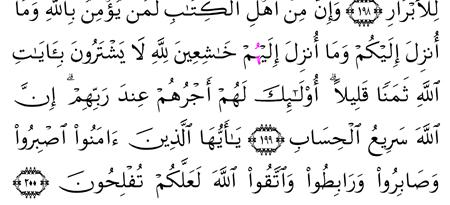 لِلْأَبْرَارِ ﴿١٩٨﴾ وَإِنَّ مِنْ أَهْلِ الْكِتَٰبِ لَمَن يُؤْمِنُ بِاللَّهِ وَمَا
أُنزِلَ إِلَيْكُمْ وَمَا أُنزِلَ إِلَيْهِمْ خَٰشِعِينَ لِلَّهِ لَا يَشْتَرُونَ بِـَٔايَٰتِ
اللَّهِ ثَمَنًا قَلِيلًا ۗ أُو۟لَٰٓئِكَ لَهُمْ أَجْرُهُمْ عِندَ رَبِّهِمْ ۗ إِنَّ
اللَّهَ سَرِيعُ الْحِسَابِ ﴿١٩٩﴾ يَٰٓأَيُّهَا الَّذِينَ ءَامَنُوا۟ اصْبِرُوا۟
وَصَابِرُوا۟ وَرَابِطُوا۟ وَاتَّقُوا۟ اللَّهَ لَعَلَّكُمْ تُفْلِحُونَ ﴿٢٠٠﴾